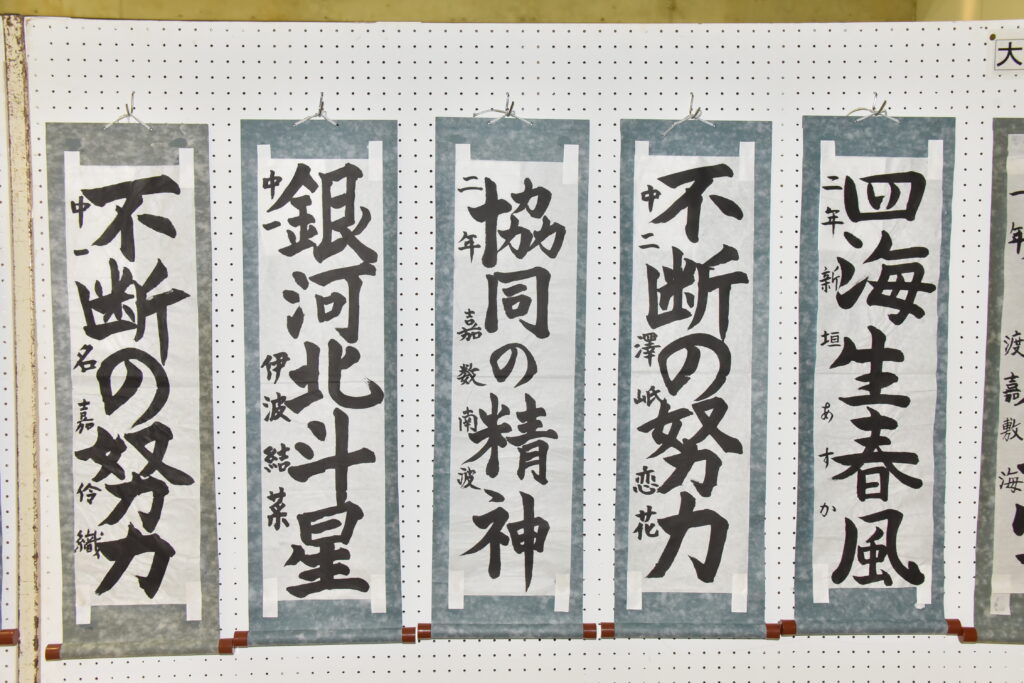 不断の努力
中一 名嘉伶織
銀河北斗星
中一 伊波結菜
協同の精神
二年 嘉数南波
不断の努力
中二 澤岻恋花
四海生春風
二年 新垣あすか
大
一年 渡嘉敷海